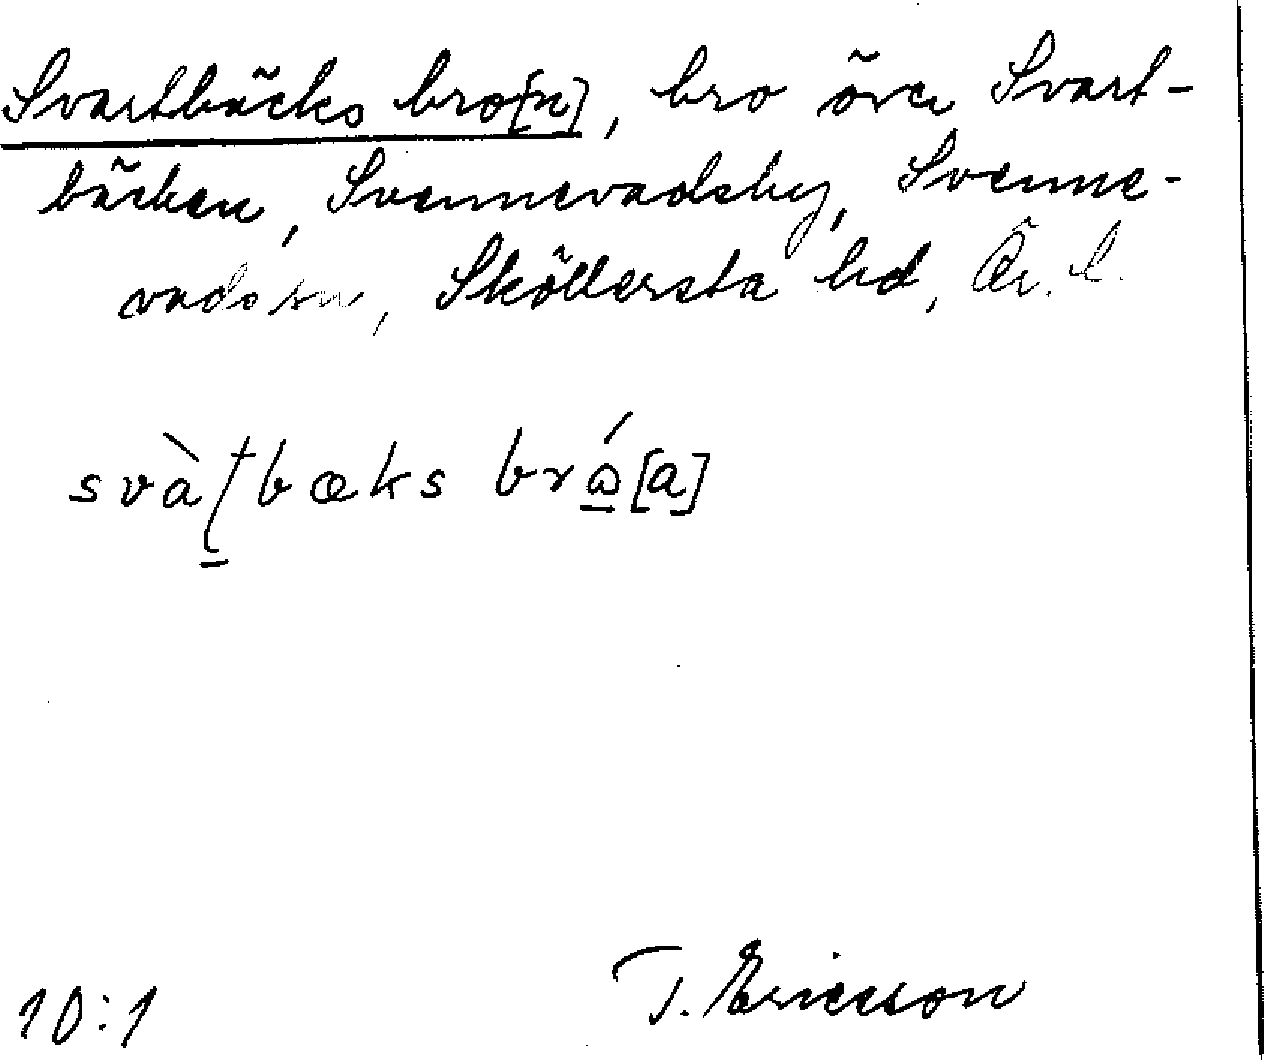 Svartbäcks bro[n], bro över Svart-
bäcken, Svennevadsby, Svenne-
vads sn, Sköllersta hd, Ör. l.
svàʈbæks brɷ́[a]
10:1 T. Ericsson